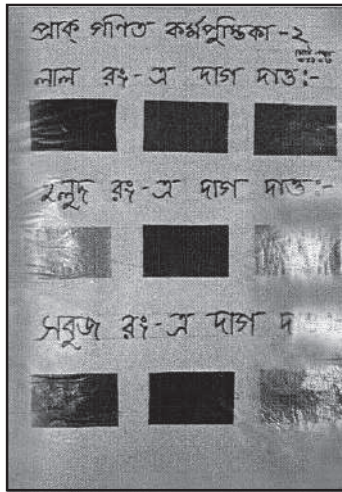 প্রাক্ গণিত কর্মপুস্তিকা -২
লাল রং-এ দাগ দাও:-
হলুদ রং-এ দাগ দাও:-
সবুজ রং-এ দাগ